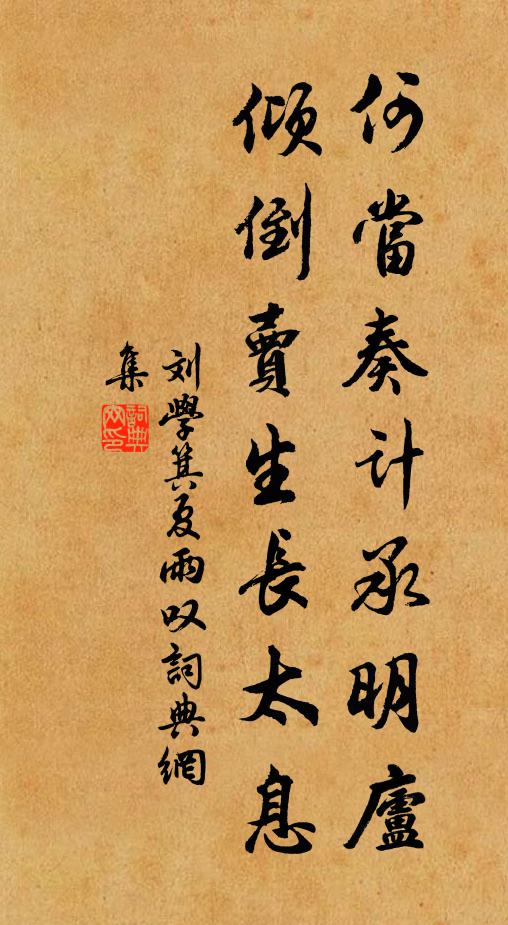 何當奏计承明廬
傾倒賣生長太息
刘學箕夏雨叹詞典網
集
詞典網印